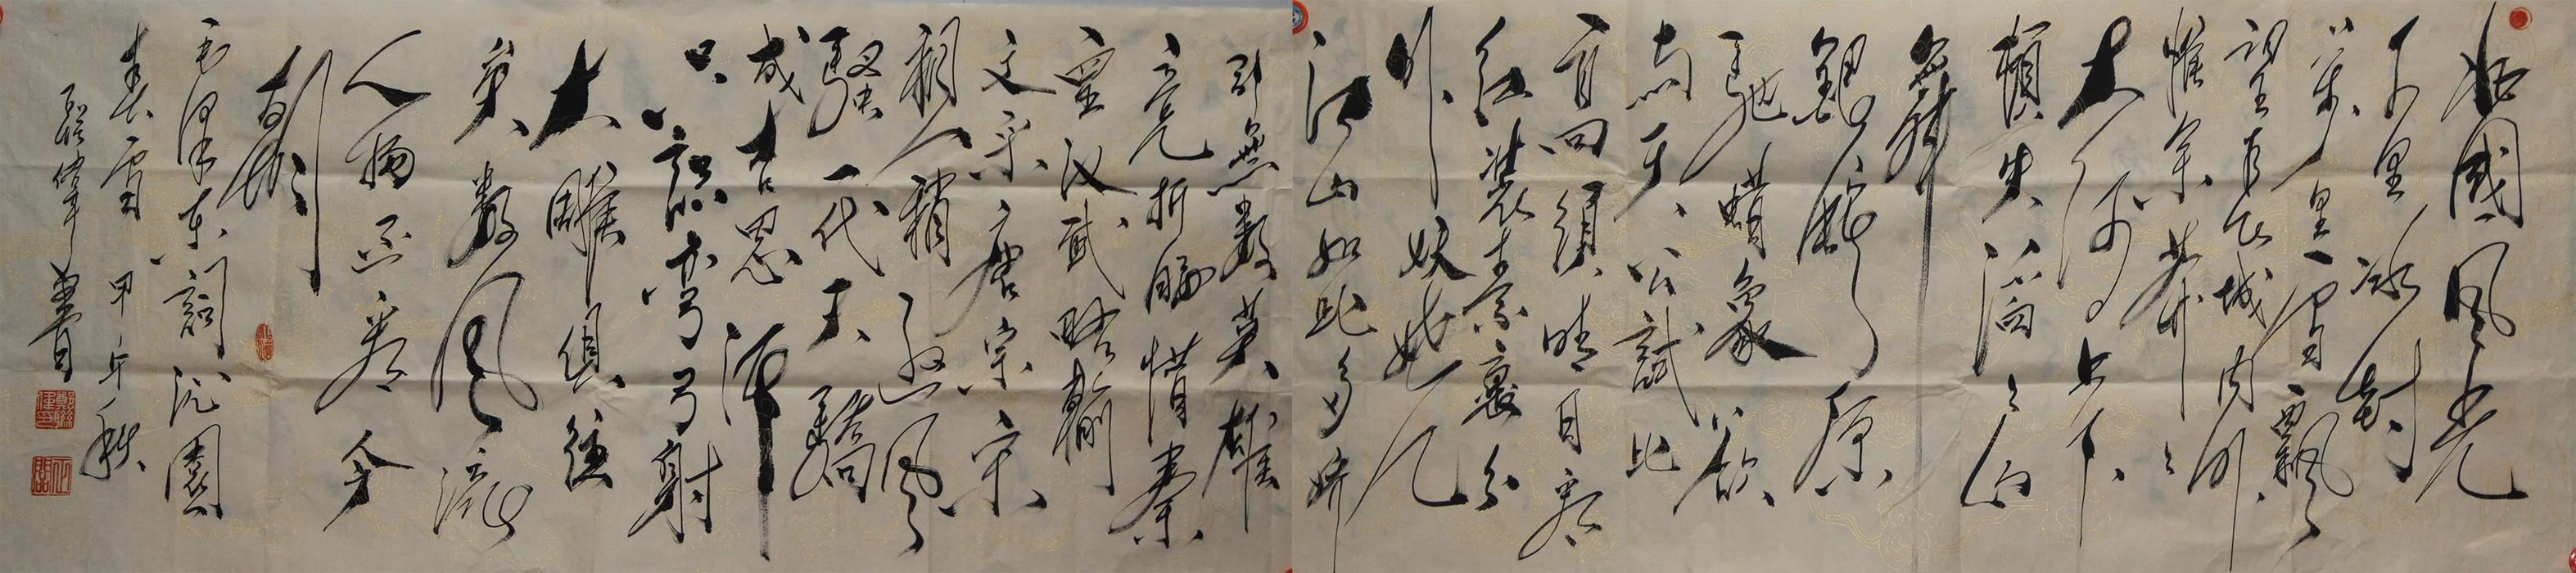 北國風光
千里冰封
万里雪飄
望长城内外
惟余莽〻
大河上下
頓失滔〻山
舞
銀蛇原
馳蜡象欲
与天公試比
高須晴日看
红装素裹分
外妖娆
江山如此多娇
引無數英雄
竞折腰惜秦
皇汉武略輸
文采唐宗宋
祖稍遜風
骚一代天驕
成吉思汗
只識弯弓射
大雕俱往
矣數風流
人物还看今
朝
毛泽东詞沁園
春雪 甲午秋
聯偉書